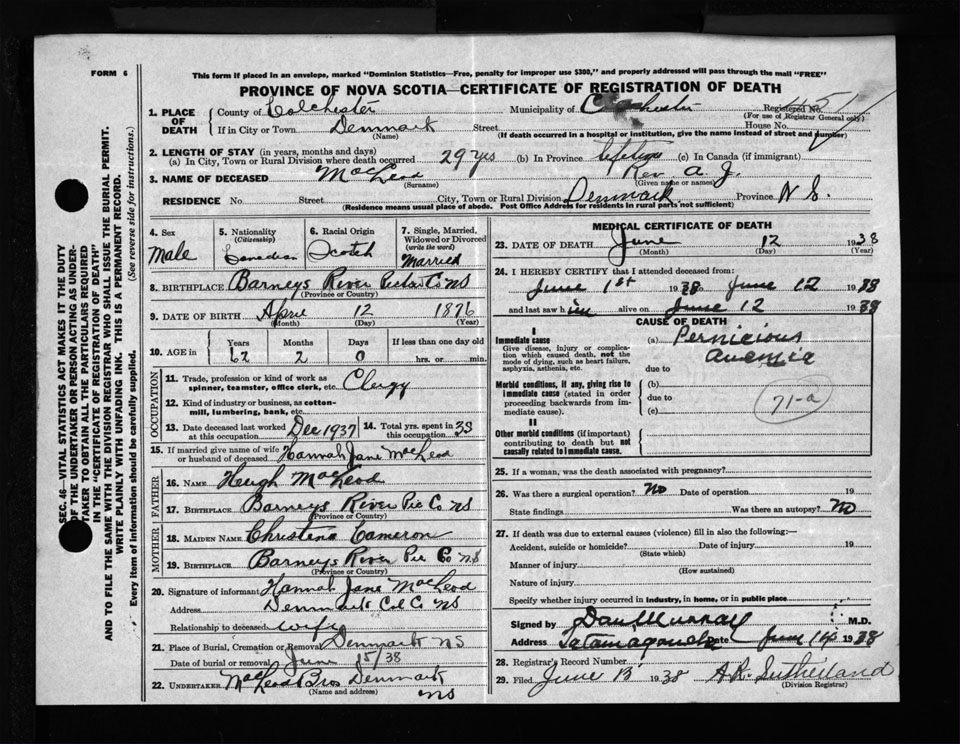 FORM 6
This form if placed in an envelope, marked "Dominion Statistics—Free, penalty for improper use $300," and properly addressed will pass through the mail "FREE"
PROVINCE OF NOVA SCOTIA—CERTIFICATE OF REGISTRATION OF DEATH
1. PLACE OF DEATH County of Colchester Municipality of Colchester Registered No.
(For use of Registrar General only)
If in City or Town Denmark Street House No.
(Name) (If death occurred in a hospital or institution, give the name instead of street and number)
2. LENGTH OF STAY (in years, months and days)
(a) In City, Town or Rural Division where death occurred 29 yrs (b) In Province lifetime (c) In Canada (if immigrant)
3. NAME OF DECEASED MacLeod Rev. A. J.
(Surname) (Given name or names)
RESIDENCE No. Street City, Town or Rural Division Denmark Province N S.
(Residence means usual place of abode. Post Office Address for residents in rural parts not sufficient)
4. Sex Male
5. Nationality (Citizenship) Canadian
6. Racial Origin Scotch
7. Single, Married, Widowed or Divorced (write the word) Married
8. BIRTHPLACE Barneys River Pictou Co NS
(Province or Country)
9. DATE OF BIRTH April 12 1876
(Month) (Day) (Year)
10. AGE in Years Months Days If less than one day old
62 2 0 hrs. or min.
OCCUPATION
11. Trade, profession or kind of work as spinner, teamster, office clerk, etc. Clergy
12. Kind of industry or business, as cotton-mill, lumbering, bank, etc.
13. Date deceased last worked at this occupation Dec 1937
14. Total yrs. spent in this occupation 33
15. If married give name of wife or husband of deceased Hannah Jane MacLeod
FATHER
16. NAME Hugh MacLeod
17. BIRTHPLACE Barneys River Pic Co NS
(Province or Country)
MOTHER
18. MAIDEN NAME Christena Cameron
19. BIRTHPLACE Barneys River Pic Co NS
(Province or Country)
20. Signature of informant Hannah Jane MacLeod
Address Denmark Col Co NS
Relationship to deceased wife
21. Place of Burial, Cremation or Removal Denmark NS
Date of burial or removal June 15/38
22. UNDERTAKER MacLeod Bros Denmark NS
(Name and address)
MEDICAL CERTIFICATE OF DEATH
23. DATE OF DEATH June 12 1938
(Month) (Day) (Year)
24. I HEREBY CERTIFY that I attended deceased from:
June 1st 1938 to June 12 1938
and last saw him alive on June 12 1938
CAUSE OF DEATH
I
Immediate cause (a) Pernicious anemia
Give disease, injury or complication which caused death, not the mode of dying, such as heart failure, asphyxia, asthenia, etc.
due to
Morbid conditions, if any, giving rise to immediate cause (stated in order proceeding backwards from immediate cause).
(b)
due to
(c)
71-a
II
Other morbid conditions (if important) contributing to death but not causally related to immediate cause.
25. If a woman, was the death associated with pregnancy?
26. Was there a surgical operation? No Date of operation 19
State findings Was there an autopsy? No
27. If death was due to external causes (violence) fill in also the following:—
Accident, suicide or homicide? Date of injury 19
(State which)
Manner of injury
(How sustained)
Nature of injury
Specify whether injury occurred in industry, in home, or in public place
Signed by Dan Murray M.D.
Address Tatamagouche Date June 14 1938
28. Registrar's Record Number
29. Filed June 15 1938 A.R. Sutherland
(Division Registrar)
SEC. 46—VITAL STATISTICS ACT MAKES IT THE DUTY
OF THE UNDERTAKER OR PERSON ACTING AS UNDER-
TAKER TO OBTAIN ALL THE PARTICULARS REQUIRED
IN THE "CERTIFICATE OF REGISTRATION OF DEATH"
AND TO FILE THE SAME WITH THE DIVISION REGISTRAR WHO SHALL ISSUE THE BURIAL PERMIT.
WRITE PLAINLY WITH UNFADING INK. THIS IS A PERMANENT RECORD.
Every item of information should be carefully supplied. (See reverse side for instructions.)